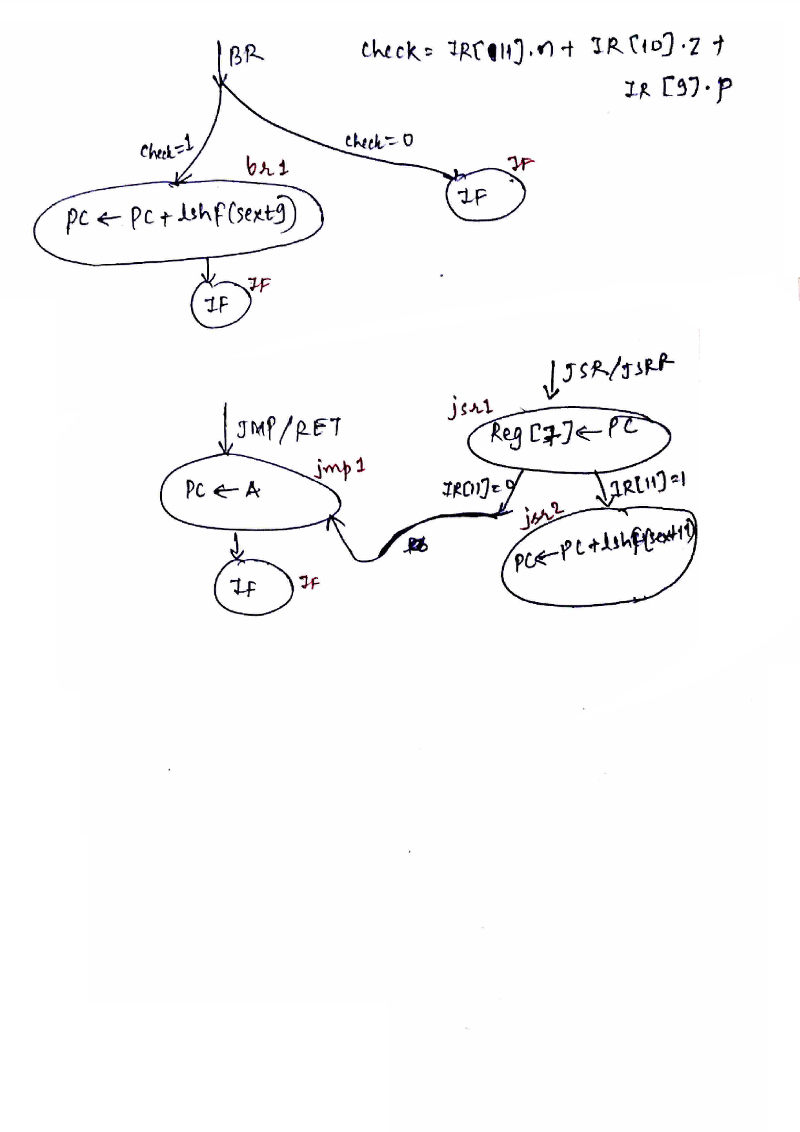 BR
check = IR[11].n + IR[10].z +
IR[9].p
check=1
check=0
br1
IF
IF
PC ← PC + lshf(sext9)
IF
IF
JSR/JSRR
jsr1
Reg[7] ← PC
JMP/RET
jmp1
PC ← A
IR[11]=0
IR[11]=1
jsr2
PC ← PC + lshf(sext11)
IF
IF